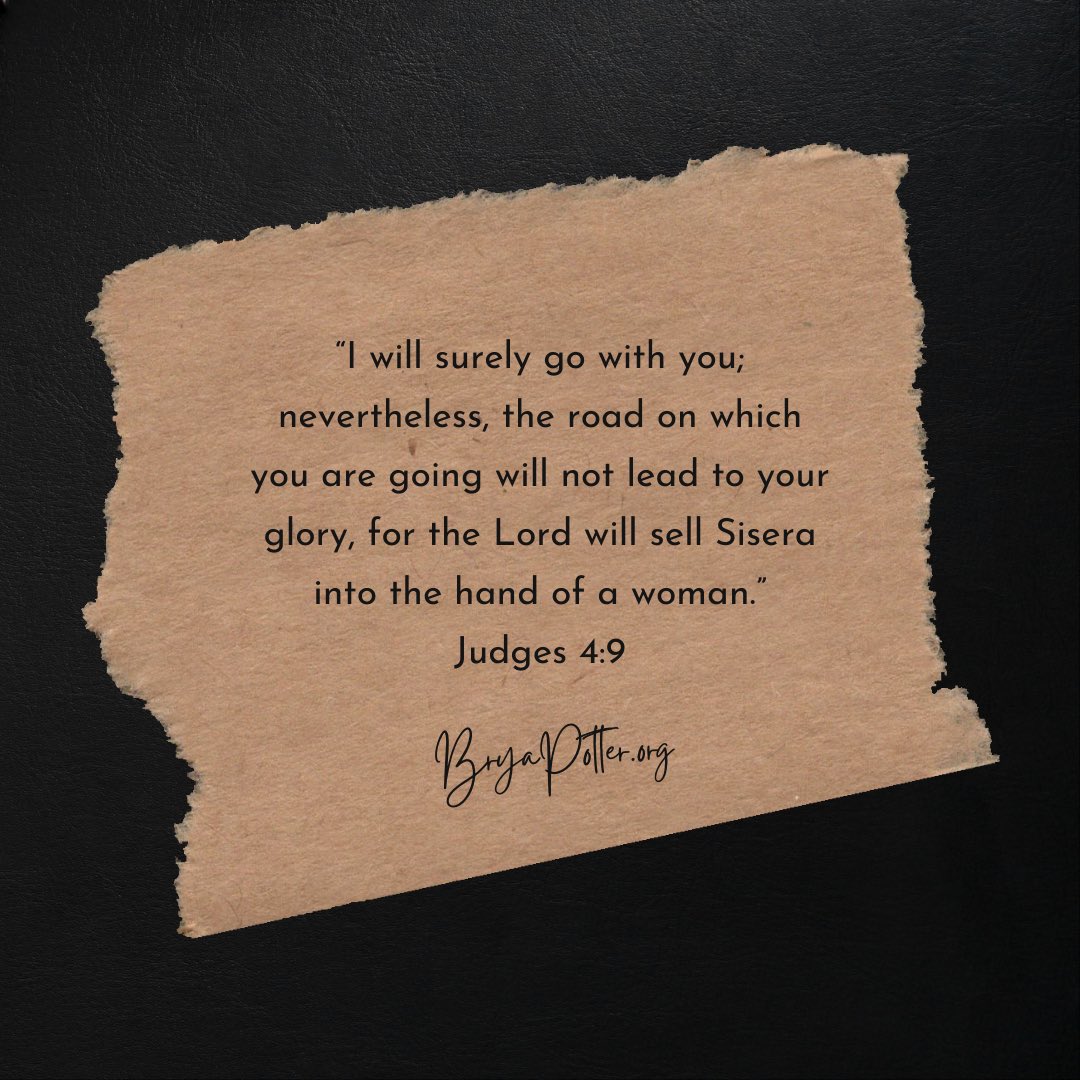 “I will surely go with you;
nevertheless, the road on which
you are going will not lead to your
glory, for the Lord will sell Sisera
into the hand of a woman.”
Judges 4:9
BryaPotter.org